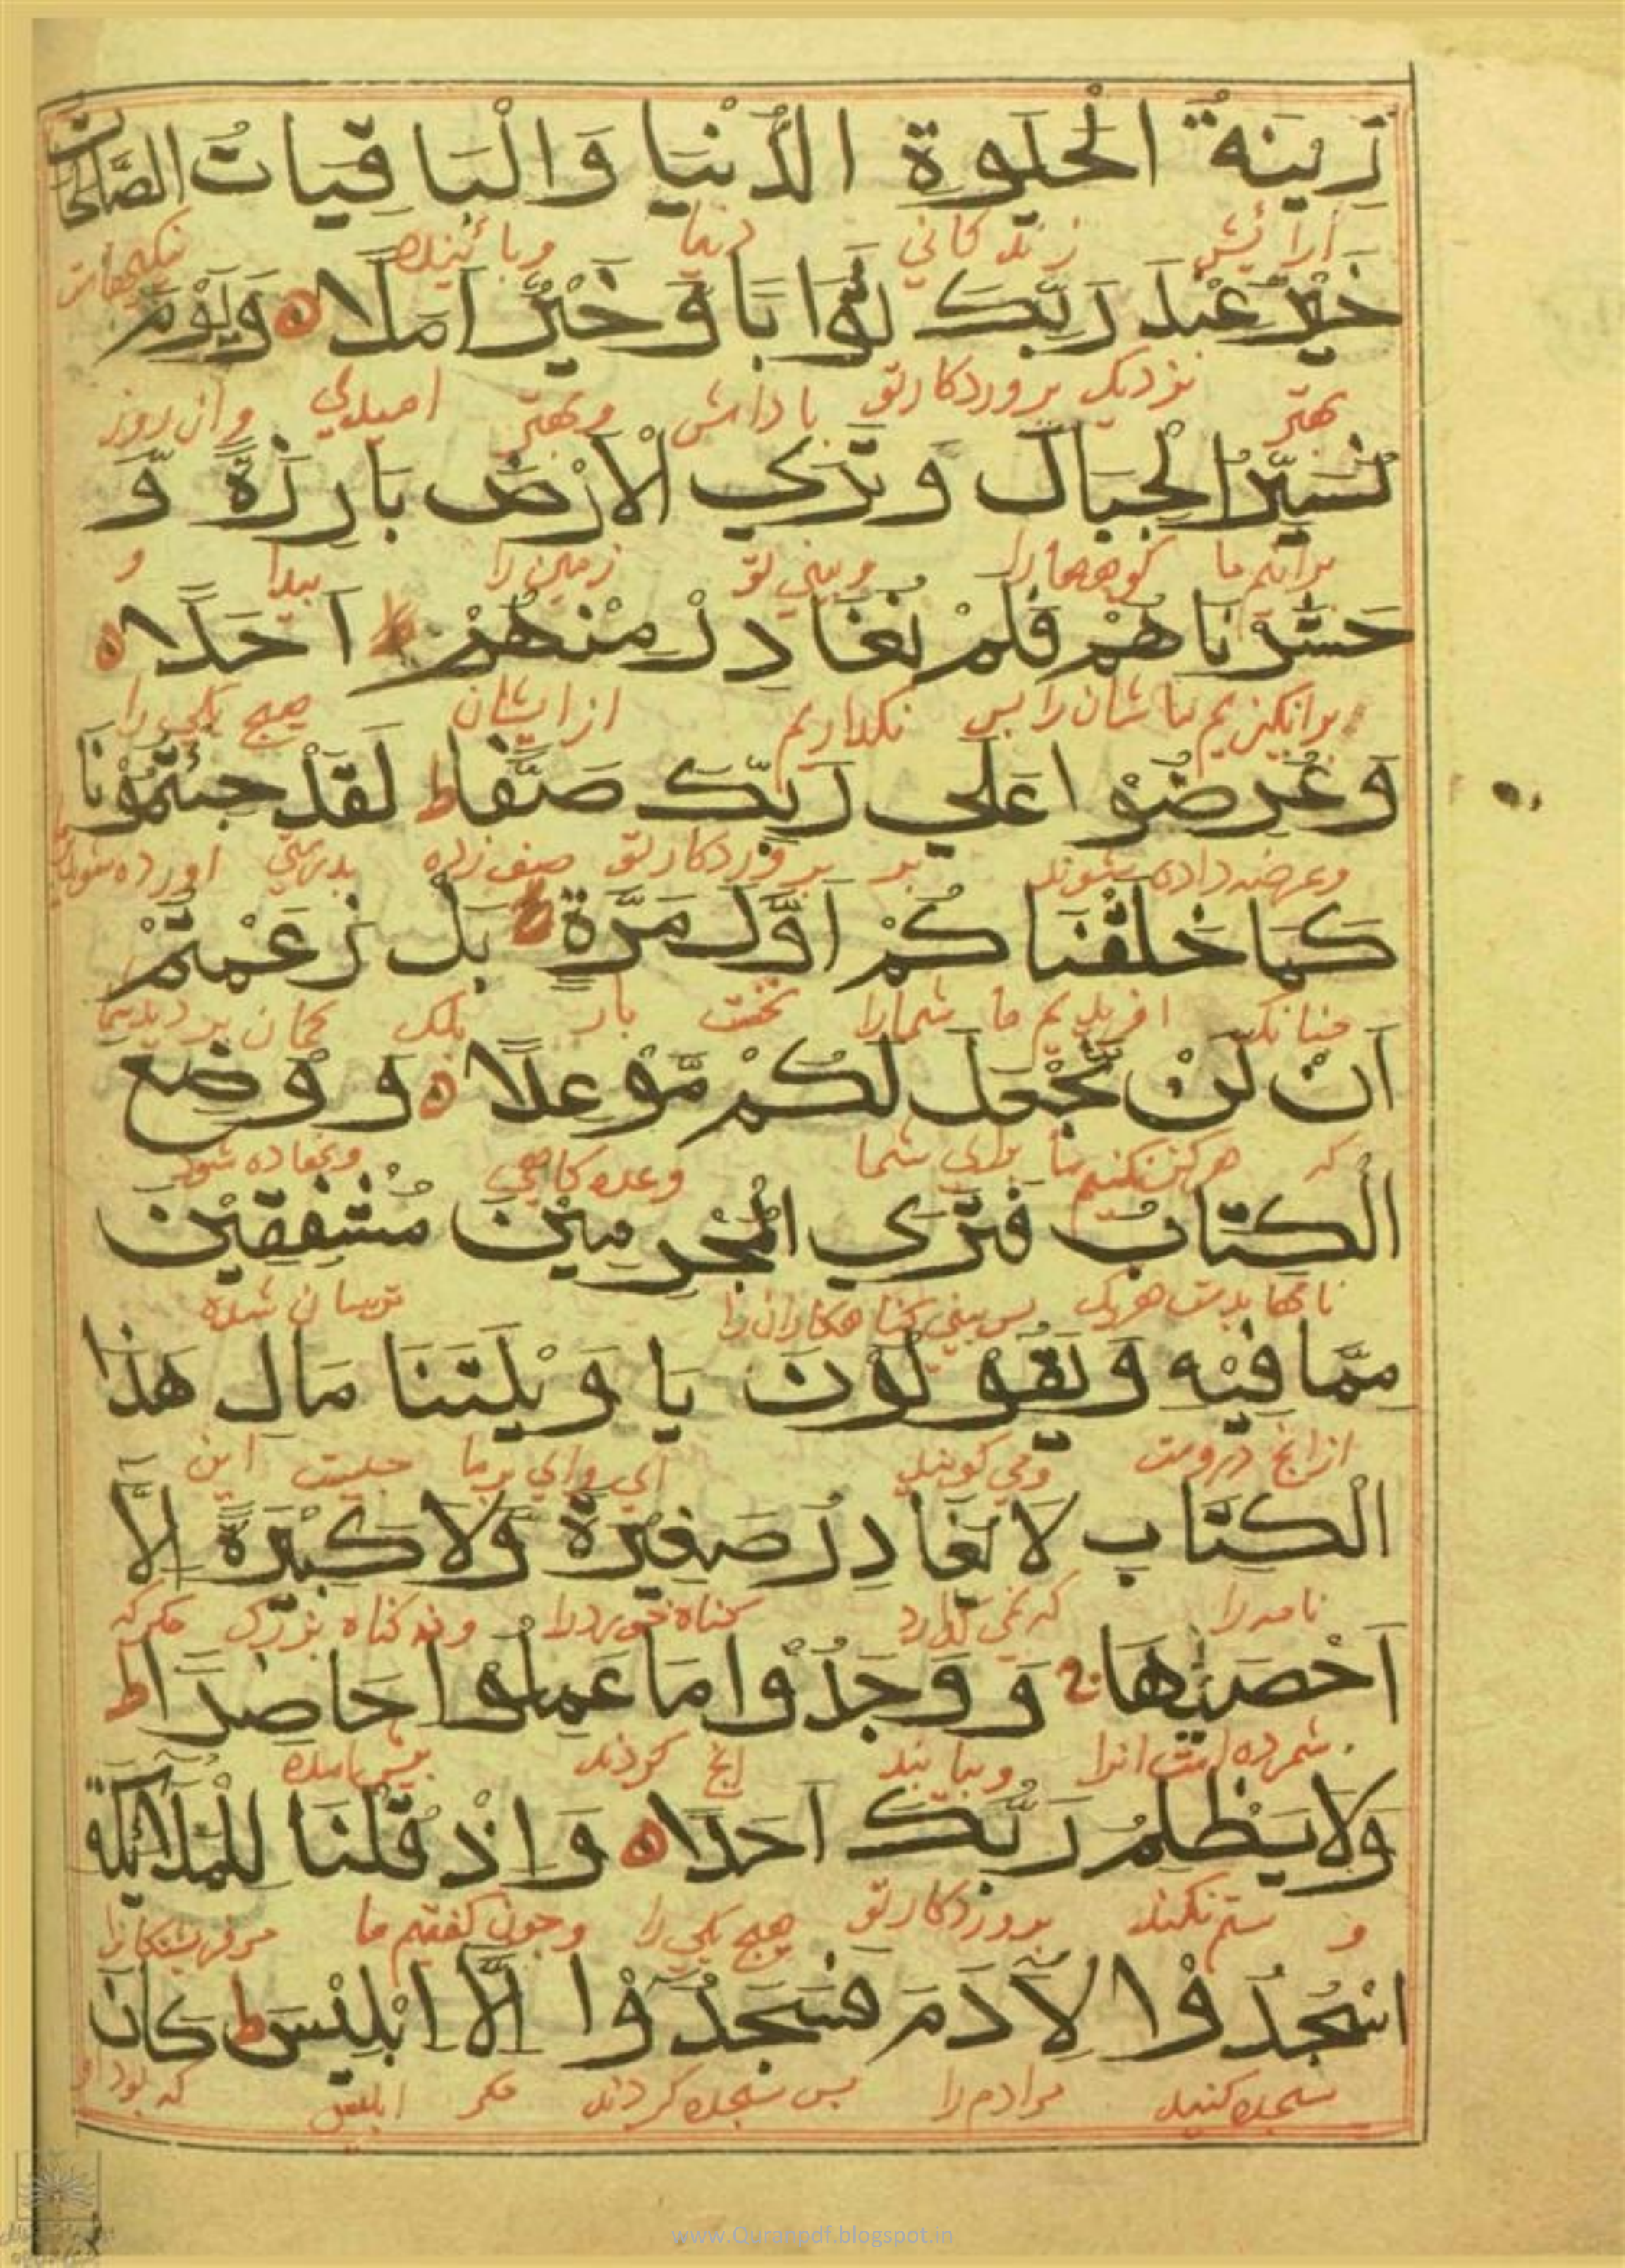 زِينَةُ الْحَيٰوةِ الدُّنْيَا وَالْبَاقِيَاتُ الصَّالِحَاتُ
آرائش زندكانى دنيا وبائنده نيكيهات
خَيْرٌ عِنْدَ رَبِّكَ ثَوَابًا وَّخَيْرٌ اَمَلًا ه وَيَوْمَ
بهتر نزديك پروردكار تو پاداش وبهتر اميدى وان روز
نُسَيِّرُ الْجِبَالَ وَتَرَي الْاَرْضَ بَارِزَةً وَّ
برانيم ما كوهها را وبينى تو زمين را پيدا و
حَشَرْنَاهُمْ فَلَمْ نُغَادِرْ مِنْهُمْ اَحَدًا ه
برانكيزيم ما شان را پس نكذاريم از ايشان هيچ يكى را
وَعُرِضُوْا عَلٰي رَبِّكَ صَفًّا ط لَقَدْ جِئْتُمُوْنَا
وعرضه داده شوند بر پروردكار تو صف زده بدرستى اورده شويد
كَمَا خَلَقْنَاكُمْ اَوَّلَ مَرَّةٍ بَلْ زَعَمْتُمْ
چنانك افريديم ما شما را نخست بار بلك كمان برديد شما
اَنْ لَنْ نَّجْعَلَ لَكُمْ مَّوْعِدًا ه وَ وُضِعَ
كه هركز نكنيم ما براى شما وعده كاهى ونهاده شود
الْكِتَابُ فَتَرَي الْمُجْرِمِيْنَ مُشْفِقِيْنَ
نامها بدست هر يك پس بينى كناهكاران را ترسان شده
مِمَّا فِيْهِ وَيَقُوْلُوْنَ يَا وَيْلَتَنَا مَالِ هٰذَا
از انچ دروست ومى كويند اى واى بر ما چيست اين
الْكِتَابِ لَا يُغَادِرُ صَغِيْرَةً وَّلَا كَبِيْرَةً اِلَّا
نامه را كه نمى كذارد كناه خورد را ونه كناه بزرك مكر كه
اَحْصٰيهَا وَ وَجَدُوْا مَا عَمِلُوْا حَاضِرًا ط
شمرده است انرا وبيابند انچ كردند پيش امده
وَلَا يَظْلِمُ رَبُّكَ اَحَدًا ه وَاِذْ قُلْنَا لِلْمَلَآئِكَةِ
و ستم نكند پروردكار تو هيچ يكى را وچون كفتيم ما مر فرشتكانرا
اسْجُدُوْا لِاٰدَمَ فَسَجَدُوْٓا اِلَّآ اِبْلِيْسَ ط كَانَ
سجده كنيد مر ادم را پس سجده كردند مكر ابليس كه بود او
www.Quranpdf.blogspot.in